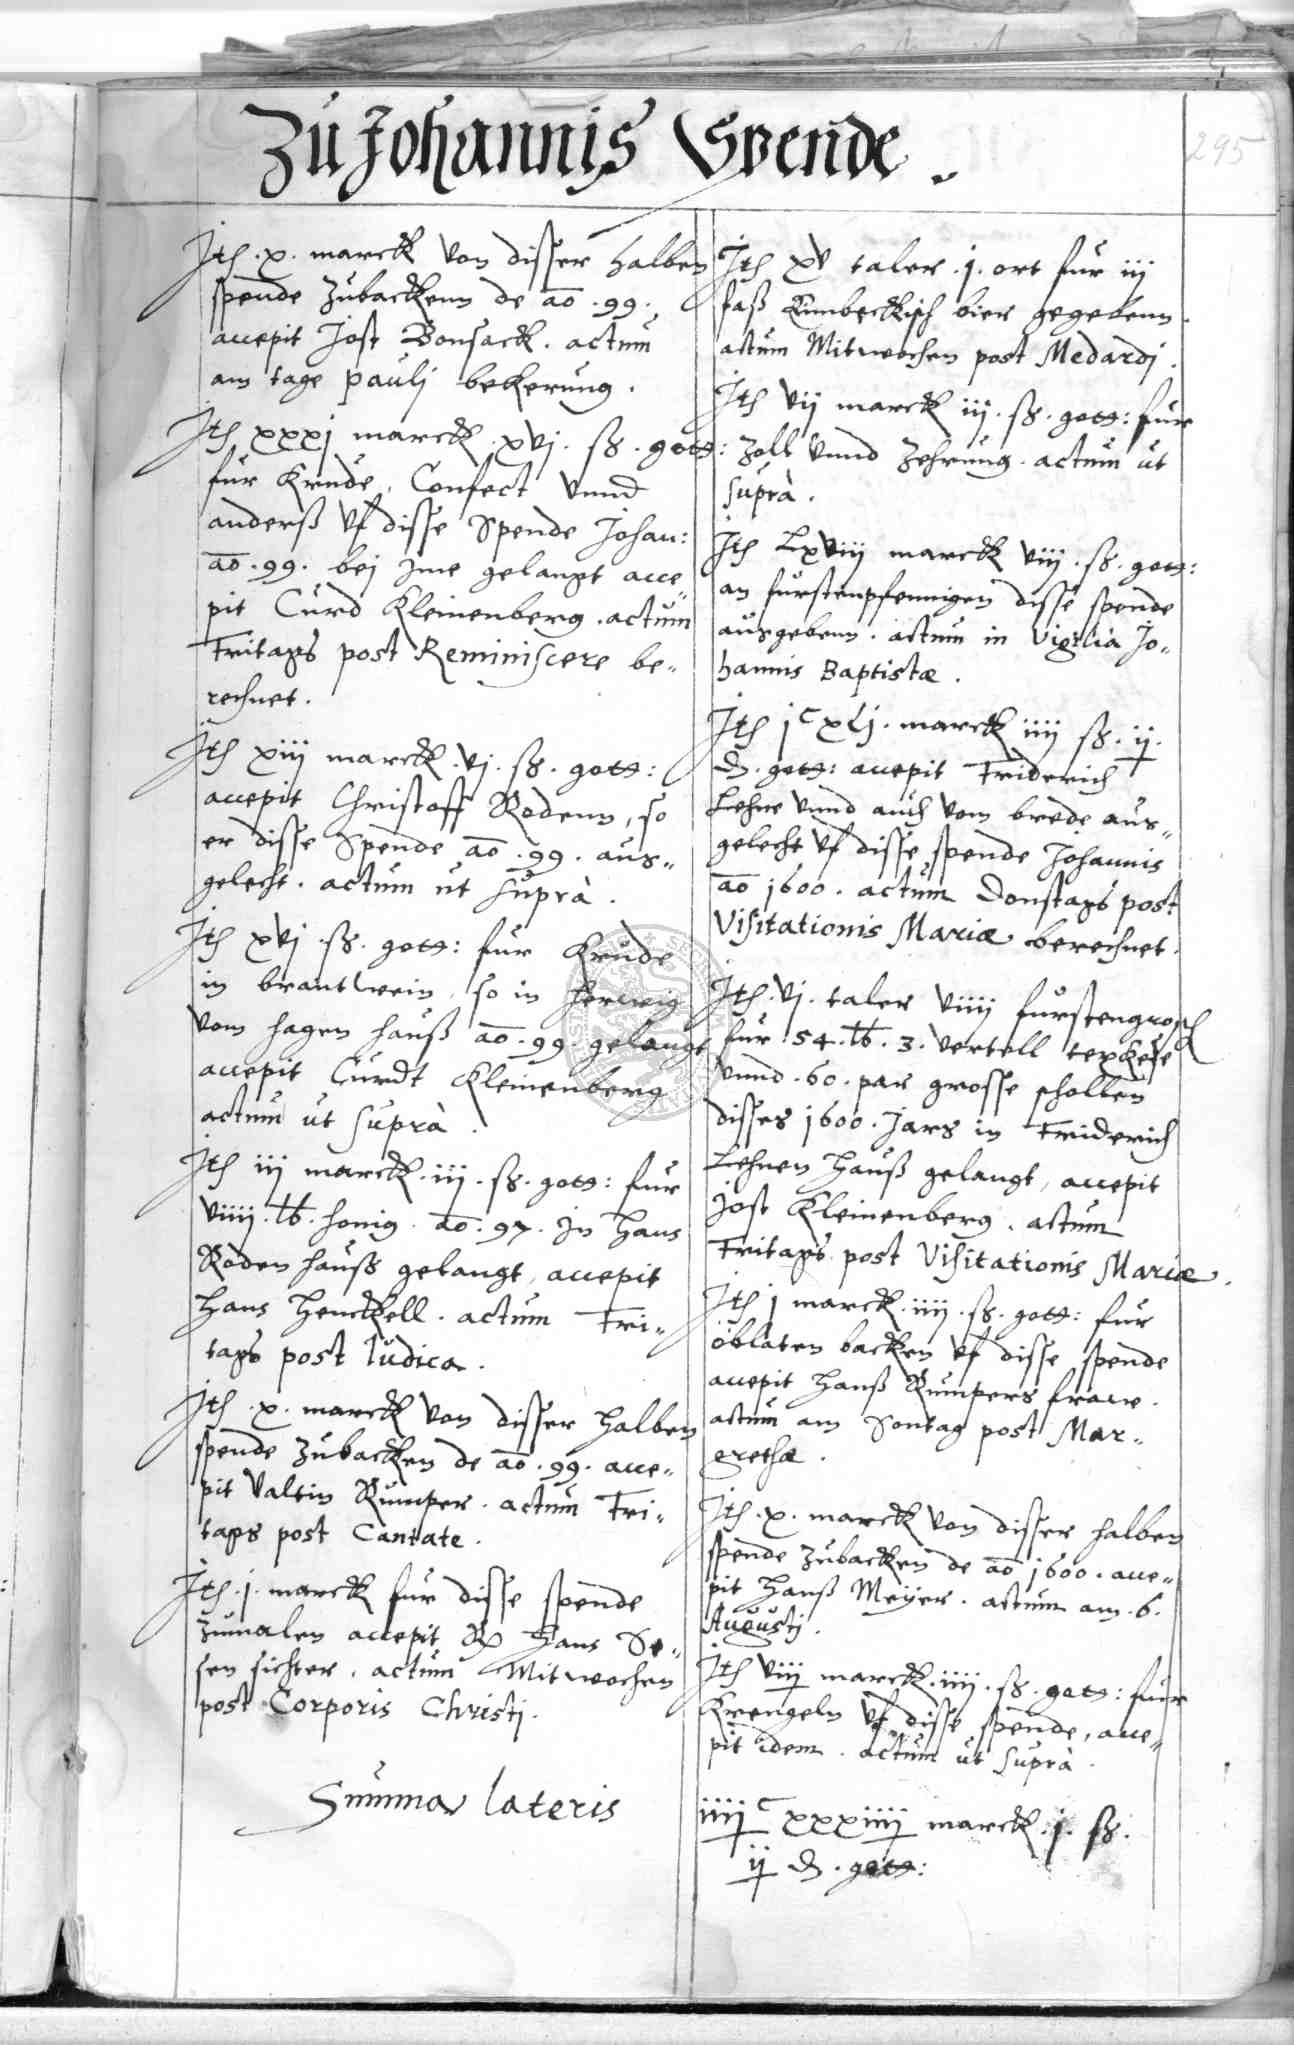 Zu Johannis Spende.
295
Jth. x. marck von disser halben
spende zubackenn de ao. 99.
accepit Jost Bonsack. actum
am tage Paulj bekerung.
Jth xxxj marck. xvj. ß. gots:
fur Krude, Confect unnd
anderß uf disse Spende Johan:
ao. 99. bej jme gelangt acce„
pit Curd Kleinenberg. actum
Fritags post Reminiscere be„
rechnet.
Jth xiij marck. vj. ß. gots:
accepit Christoff Rodenn, so
er disse Spende ao. 99. aus„
gelecht. actum ut suprà.
Jth xvj. ß. gots: fur Krude
in brantwein, so in Herwig
vom hagen hauß ao. 99. gelangt
accepit Curdt Kleinenberg
actum ut suprà.
Jth iij marck. iij. ß. gots: fur
viiij. lb. honig. ao. 97. in Hans
Roden hauß gelangt, accepit
Hans Henckell. actum Fri„
tags post Iudica.
Jth. x. marck von disser halben
spende zubacken de ao. 99. acce„
pit Valtin Rumper. actum Fri„
tags post Cantate.
Jth. j. marck fur disse spende
zumalen accepit Hans
actum Mitwochen
post Corporis Christj.
Summa lateris
Jth xv taler. j. ort fur iij
faß Eimbeckisch bier gegebenn.
actum Mitwochen post Medardj.
Jth vij marck iij. ß. gots: fur
Zoll unnd Zehrung. actum ut
suprà.
Jth Lxviij marck viij. ß. gots:
an furstenpfennigen disse spende
ausgebenn. actum in Vigilia Jo„
hannis Baptistæ.
Jth jC xLj. marck iiij ß. ij.
d. gots: accepit Friderich
Lehne unnd auch vom brede aus„
gelecht uf disse spende Johannis
ao 1600. actum Donstags post
Visitationis Mariæ berechnet.
Jth. vj. taler viiij furstengrosch
fur 54. lb. 3. vertell texkese
unnd. 60. par grosse schollen
disses 1600. Jars in Friderich
Lehnen Hauß gelangt, accepit
Jost Kleinenberg. actum
Fritags post Visitationis Mariæ.
Jth j marck. iiij. ß. gots: fur
oblaten backen uf disse spende
accepit Hanß Rumpers fraw.
actum am Sontag post Mar„
grethæ.
Jth. x. marck von disser halben
spende zubacken de ao 1600. acce„
pit Hanß Meyer. actum am. 6.
Augustj.
Jth viij marck. iiij. ß. gots: fur
Krengeln uf disse spende, acce„
pit idem. actum ut suprà.
iiijC xxxiiij marck. j. ß.
ij d. gots: